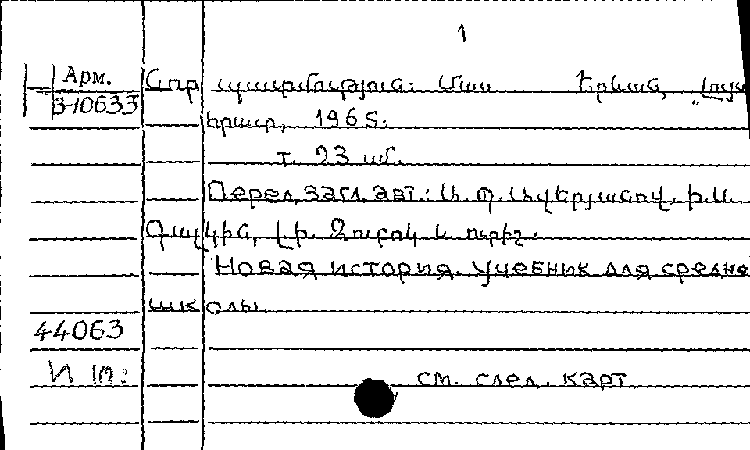 1
Арм. Նոր պատմություն: Մաս Երևան, Լույս
3-10633 հրատ., 1965.
т. 23 սմ.
Перед загл. авт.: Ա. Պ. Ավերյանով, Ի. Մ.
Գալկին, Լ. Ի. Զուբոկ և ուրիշ.
Новая история. Учебник для средне
школы
44063
И
см. след. карт